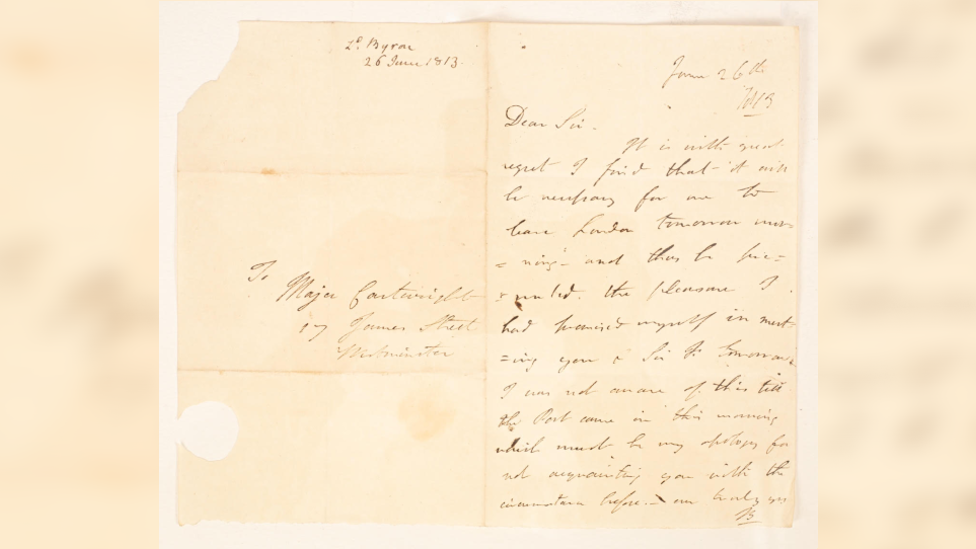 Ld. Byron
26 June 1813.
To
Major Cartwright
17 James Street
Westminster
June 26th
1813
Dear Sir.
It is with great
regret I find that it will
be necessary for me to
leave London tomorrow mor-
= ning - and thus be pre=
= vented. the pleasure I
had promised myself in meet-
=ing you & Sir F. tomorrow.
I was not aware of this till
the Post came in this morning
which must be my apology for
not acquainting you with the
circumstance before. - am truly yrs
B